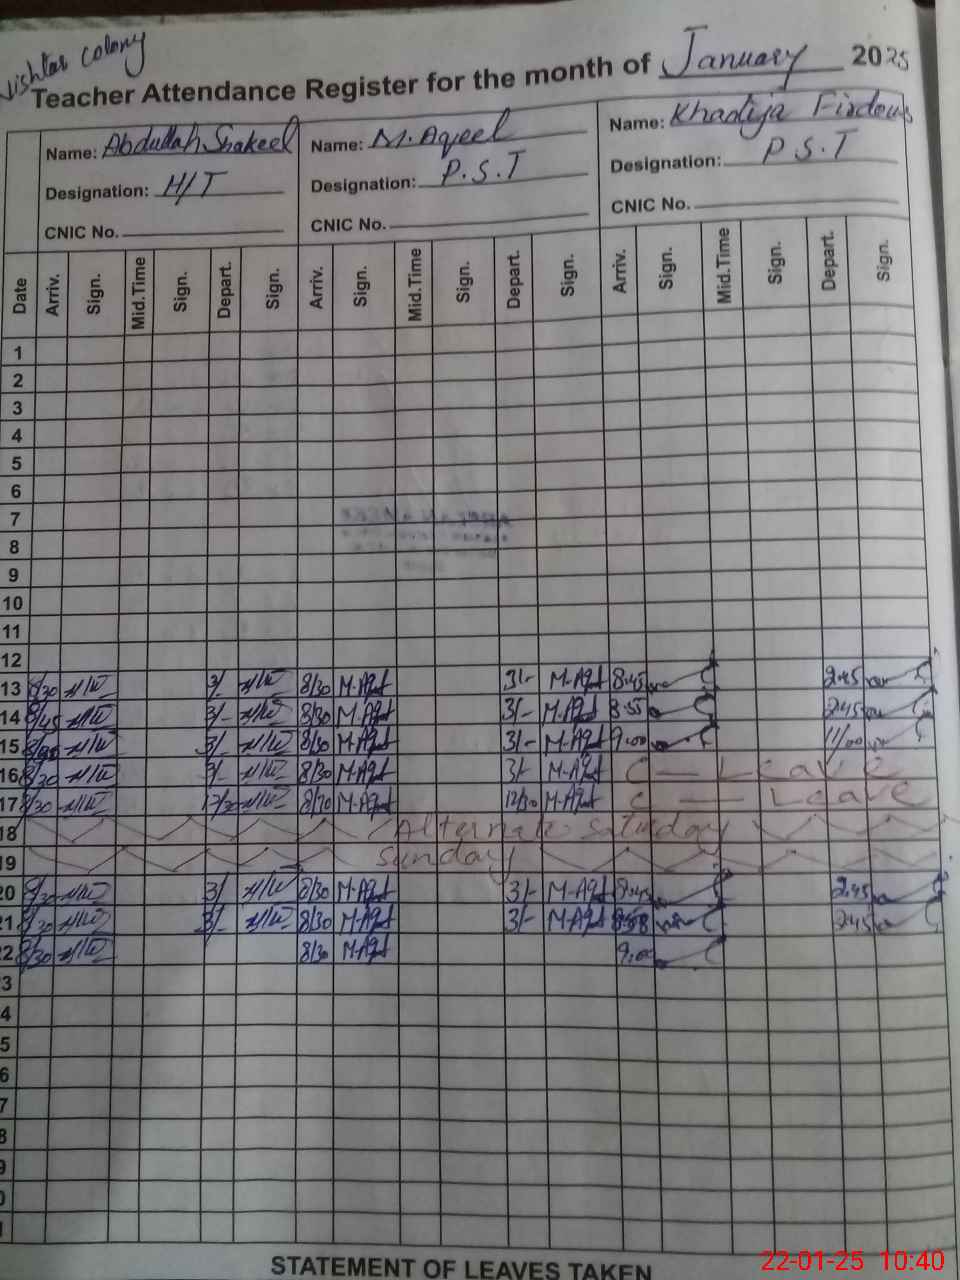 Nishtar colony
Teacher Attendance Register for the month of January 2025
Name: Abdullah Shakeel Name: M. Aqeel Name: Khadija Firdous
Designation: H/T Designation: P.S.T Designation: P.S.T
CNIC No. CNIC No. CNIC No.
Date Arriv. Sign. Mid.Time Sign. Depart. Sign. Arriv. Sign. Mid.Time Sign. Depart. Sign. Arriv. Sign. Mid.Time Sign. Depart. Sign.
1
2
3
4
5
6
7
8
9
10
11
12
13 8/30 3/- 8/30 M.Aqel 3/- M.Aqel 8.45 2.45
14 8/45 3/- 8/30 M.Aqel 3/- M.Aqel 8.55 2.45
15 3/- 8/30 M.Aqel 3/- M.Aqel 9.00 11/00
16 8/30 3/- 8/30 M.Aqel 3/- M.Aqel C — Leave
17 8/30 12/30 8/30 M.Aqel 12/30 M.Aqel C — Leave
18 Alternate Saturday
19 Sunday
20 8/30 3/- 8/30 M.Aqel 3/- M.Aqel 2.45
21 8/30 3/- 8/30 M.Aqel 3/- M.Aqel 2.45
2 8/30 8/30 M.Aqel 9.00
3
4
5
6
7
8
9
0
1
STATEMENT OF LEAVES TAKEN
22-01-25 10:40